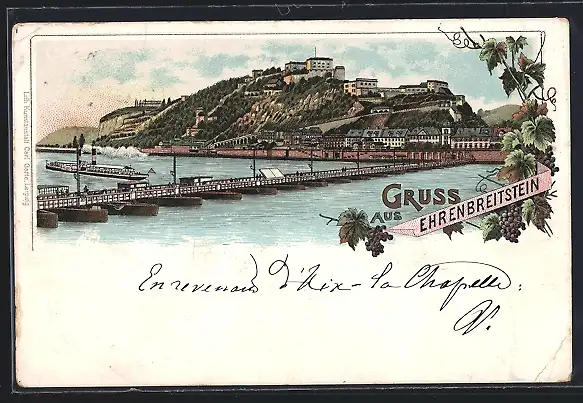 Lith. Kunstanstalt Carl Garte, Leipzig
GRUSS
AUS
EHRENBREITSTEIN
En revenant d'Aix-la Chapelle:
V.